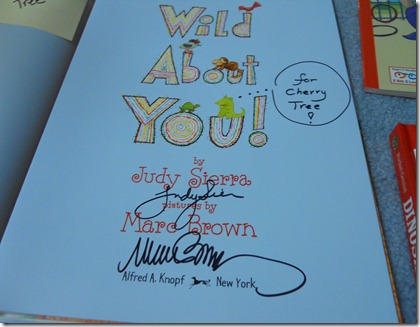 Tree
Wild
About
You!
for
Cherry
Tree
!
by
Judy Sierra
Judy Sierra
pictures by
Marc Brown
Marc Brown
Alfred A. Knopf New York
DINOS